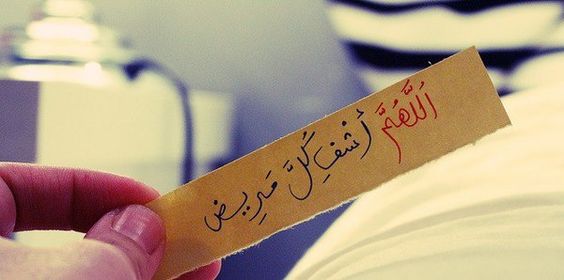 اَللَّهُمَّ أشْفِ كُلَّ مَرِيض